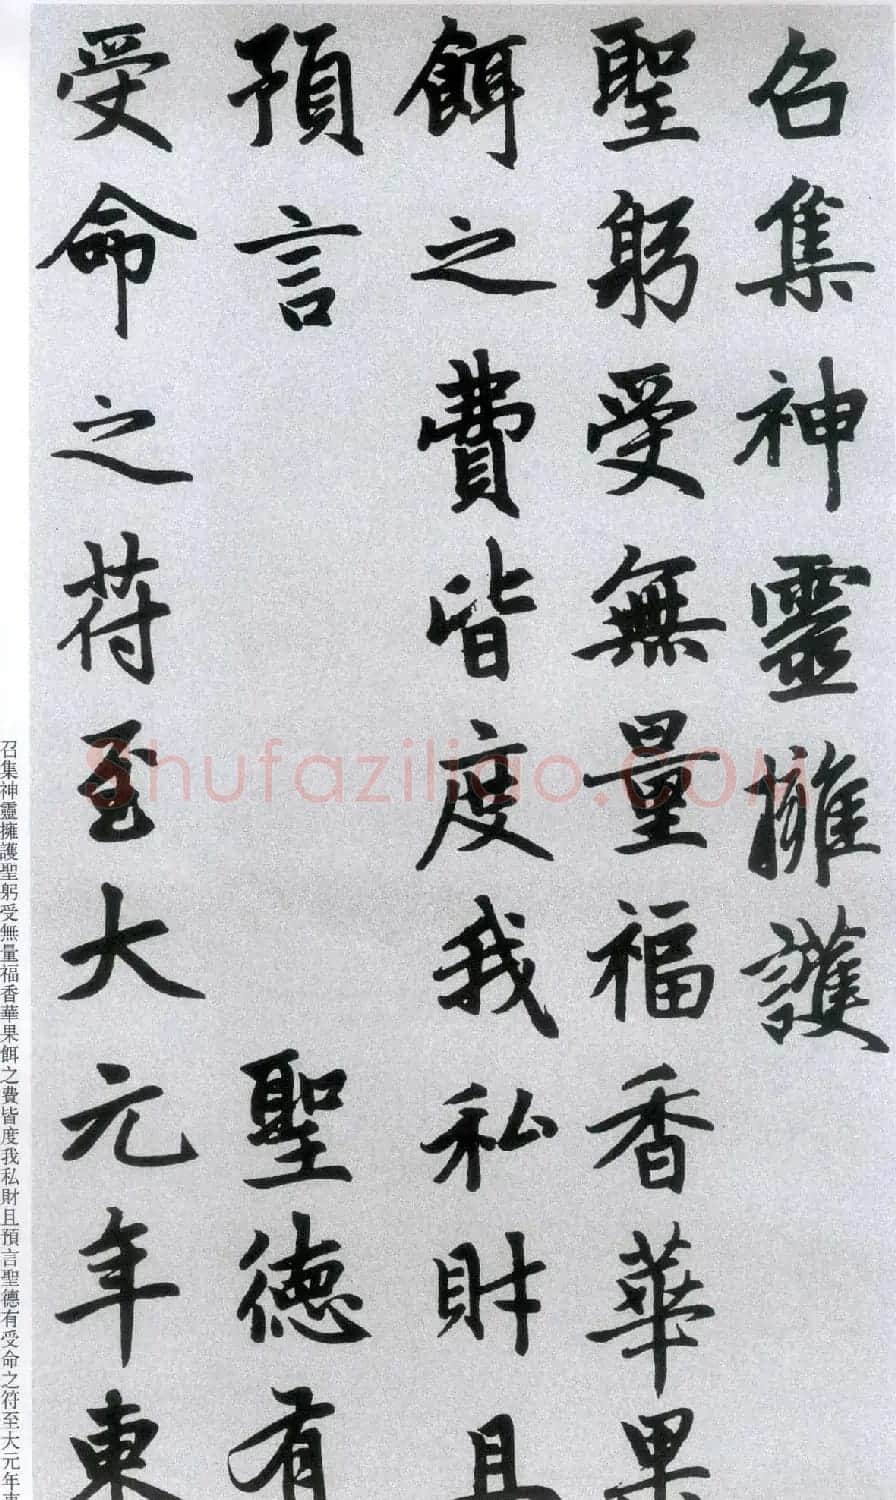 召集神靈擁護
聖躬受無量福香華果
餌之費皆度我私財且
預言 聖德有
受命之符至大元年東
召集神靈擁護聖躬受無量福香華果餌之費皆度我私財且預言聖德有受命之符至大元年東
Shufaziliao.COM